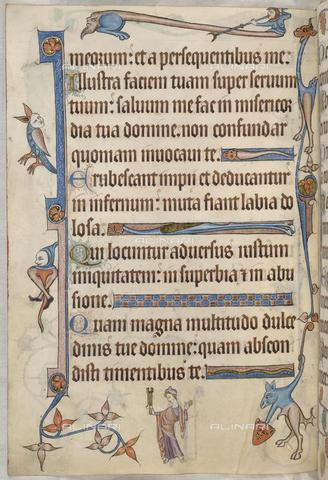 imicorum: et a persequentibus me:
Illustra faciem tuam super seruum
tuum: saluum me fac in misericor
dia tua domine. non confundar
quoniam inuocaui te.
Erubescant impii et deducantur
in infernum: muta fiant labia do
losa.
Qui locuntur aduersus iustum
iniquitatem: in superbia ⁊ in abu
sione.
Quam magna multitudo dulce
dinis tue domine: quam abscon
disti timentibus te.
ALINARI
ALINARI
ALINARI
ALINARI